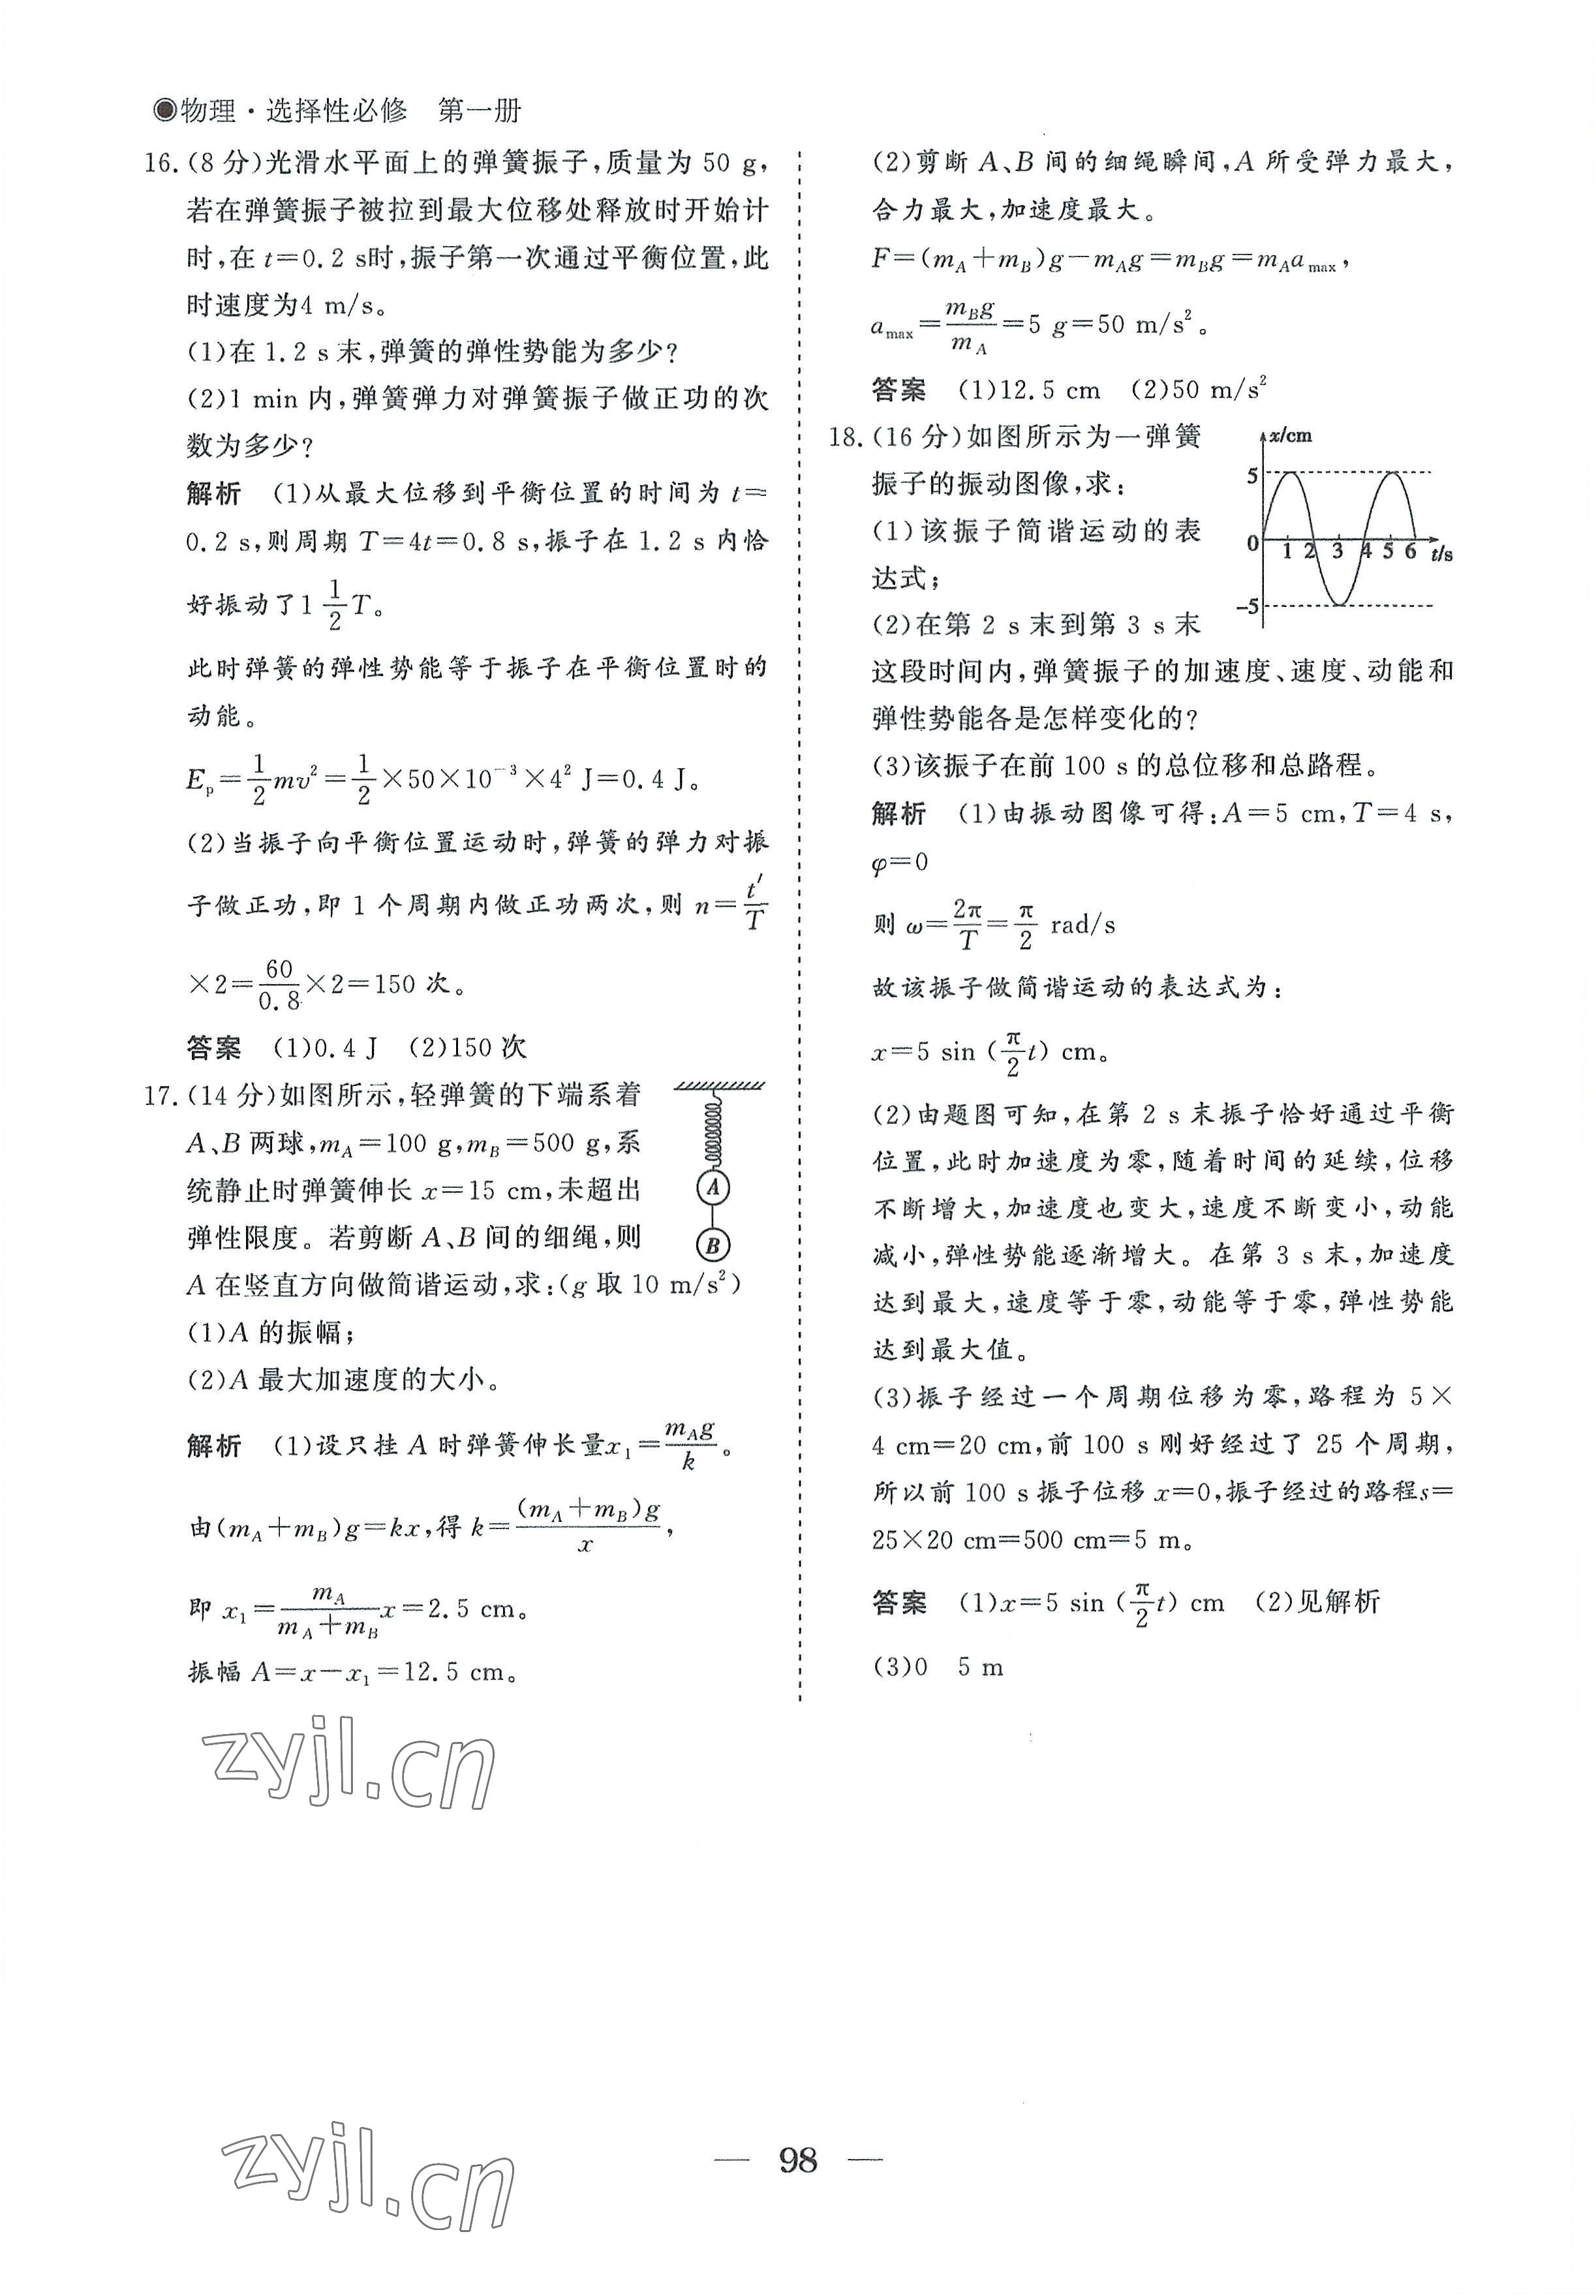 ◉物理·选择性必修　第一册
16.(8 分)光滑水平面上的弹簧振子,质量为 50 g,
若在弹簧振子被拉到最大位移处释放时开始计
时,在 t=0.2 s时,振子第一次通过平衡位置,此
时速度为4 m/s。
(1)在 1.2 s 末,弹簧的弹性势能为多少?
(2)1 min 内,弹簧弹力对弹簧振子做正功的次
数为多少?
解析　(1)从最大位移到平衡位置的时间为 t=
0.2 s,则周期 T=4t=0.8 s,振子在 1.2 s 内恰
好振动了1 1/2 T。
此时弹簧的弹性势能等于振子在平衡位置时的
动能。
Eₚ=1/2 mv²=1/2×50×10⁻³×4² J=0.4 J。
(2)当振子向平衡位置运动时,弹簧的弹力对振
子做正功,即 1 个周期内做正功两次,则 n=t′/T
×2=60/0.8×2=150 次。
答案　(1)0.4 J　(2)150 次
17.(14 分)如图所示,轻弹簧的下端系着
A、B 两球,m_A=100 g,m_B=500 g,系
统静止时弹簧伸长 x=15 cm,未超出
弹性限度。若剪断 A、B 间的细绳,则
A 在竖直方向做简谐运动,求:(g 取 10 m/s²)
A
B
(1)A 的振幅;
(2)A 最大加速度的大小。
解析　(1)设只挂 A 时弹簧伸长量x₁=m_A g/k。
由(m_A+m_B)g=kx,得 k=(m_A+m_B)g/x,
即 x₁=m_A/(m_A+m_B) x=2.5 cm。
振幅 A=x-x₁=12.5 cm。
(2)剪断 A、B 间的细绳瞬间,A 所受弹力最大,
合力最大,加速度最大。
F=(m_A+m_B)g-m_A g=m_B g=m_A a_max,
a_max=m_B g/m_A=5 g=50 m/s²。
答案　(1)12.5 cm　(2)50 m/s²
18.(16 分)如图所示为一弹簧
振子的振动图像,求:
(1)该振子简谐运动的表
达式;
(2)在第 2 s 末到第 3 s 末
x/cm
5
0
1 2 3 4 5 6 t/s
-5
这段时间内,弹簧振子的加速度、速度、动能和
弹性势能各是怎样变化的?
(3)该振子在前 100 s 的总位移和总路程。
解析　(1)由振动图像可得:A=5 cm,T=4 s,
φ=0
则 ω=2π/T=π/2 rad/s
故该振子做简谐运动的表达式为:
x=5 sin (π/2 t) cm。
(2)由题图可知,在第 2 s 末振子恰好通过平衡
位置,此时加速度为零,随着时间的延续,位移
不断增大,加速度也变大,速度不断变小,动能
减小,弹性势能逐渐增大。在第 3 s 末,加速度
达到最大,速度等于零,动能等于零,弹性势能
达到最大值。
(3)振子经过一个周期位移为零,路程为 5×
4 cm=20 cm,前 100 s 刚好经过了 25 个周期,
所以前 100 s 振子位移 x=0,振子经过的路程s=
25×20 cm=500 cm=5 m。
答案　(1)x=5 sin (π/2 t) cm　(2)见解析
(3)0　5 m
zyjl.cn
zyjl.cn
— 98 —